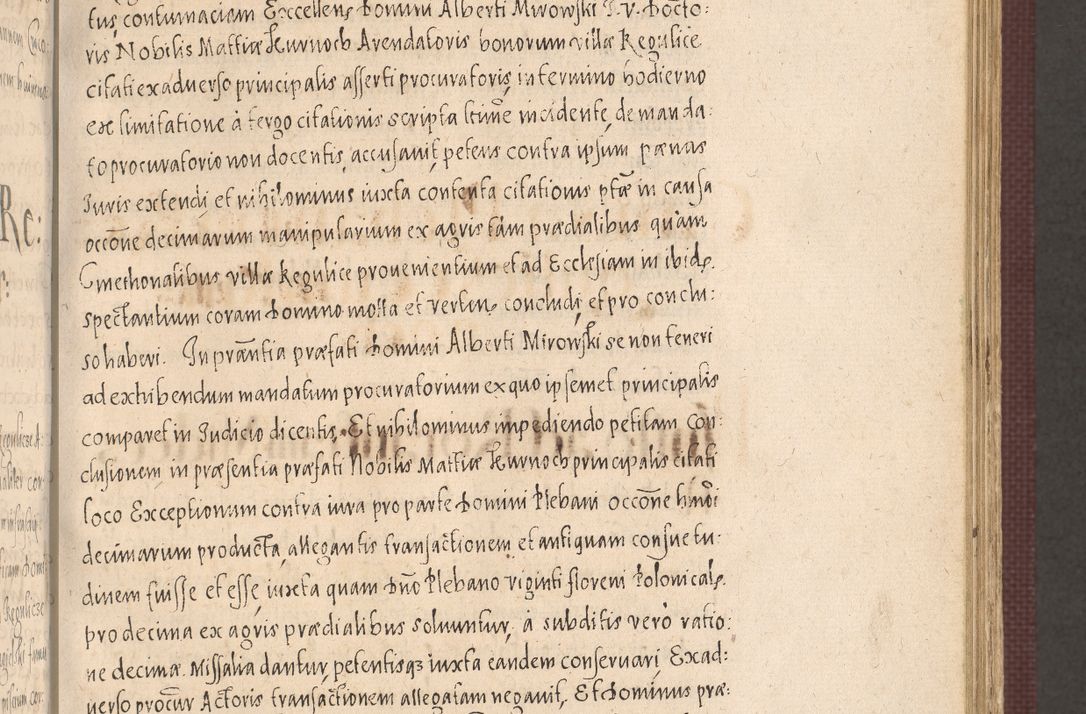 tus, contumaciam Excellens Domini Alberti Mirowski I. V. Docto:
ris Nobilis Mattiæ Kurnoch Arendatoris bonorum villæ Regulice
citati ex adverso principalis asserti procuratoris, in termino hodierno
ex limitatione à tergo citationis scripta ltime incidente, de manda:
to procuratorio non docentis, accusavit petens contra ipsum pænas
Iuris extendi, et nihilominus iuxta contenta citationis ptæ in causa
occõne decimarum manipularium ex agris tàm prædialibus quàm
Cmethonalibus villæ Regulice provenientium et ad Ecclesiam in ibid.
spectantium coram Domino mota et verten, concludi, et pro conclu:
so haberi. In prãntia præfati Domini Alberti Mirowski se non teneri
ad exhibendum mandatum procuratorium ex quo ipsemet principalis
comparet in Iudicio dicentis, Et nihilominus impediendo petitam con:
clusionem in præsentia præfati Nobilis Mattiæ Kurnoch principalis citati
loco Exceptionum contra iura pro parte Domini Plebani occõne hmõi
decimarum producta, allegantis transactionem et antiquam consuetu:
dinem fuisse et esse, iuxta quam Dno Plebano viginti floreni Polonical.
pro decima ex agris prædialibus solvuntur, à subditis verò ratio:
ne decimæ Missalia dantur, petentisq; iuxta eandem conservari, Exad:
verso procur Actoris transactionem allegatam negavit, Et Dominus præ: